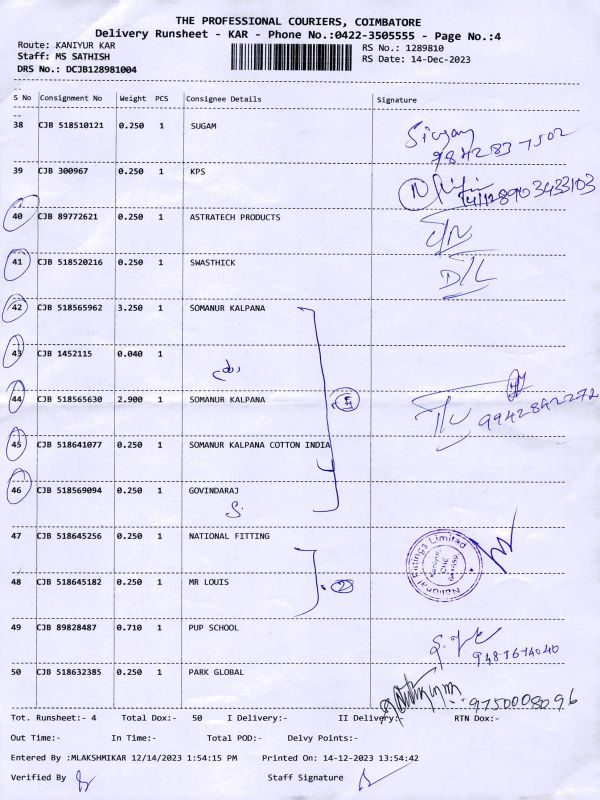 THE PROFESSIONAL COURIERS, COIMBATORE
Delivery Runsheet - KAR - Phone No.:0422-3505555 - Page No.:4
Route: KANIYUR KAR RS No.: 1289810
Staff: MS SATHISH RS Date: 14-Dec-2023
DRS No.: DCJB128981004
S No Consignment No Weight PCS Consignee Details Signature
38 CJB 518510121 0.250 1 SUGAM
9842837502
39 CJB 300967 0.250 1 KPS
40 CJB 89772621 0.250 1 ASTRATECH PRODUCTS
41 CJB 518520216 0.250 1 SWASTHICK D/L
42 CJB 518565962 3.250 1 SOMANUR KALPANA
43 CJB 1452115 0.040 1
44 CJB 518565630 2.900 1 SOMANUR KALPANA 5
9942842272
45 CJB 518641077 0.250 1 SOMANUR KALPANA COTTON INDIA
46 CJB 518569094 0.250 1 GOVINDARAJ
S.
47 CJB 518645256 0.250 1 NATIONAL FITTING
National Fittings Limited
48 CJB 518645182 0.250 1 MR LOUIS 2
49 CJB 89828487 0.710 1 PUP SCHOOL
50 CJB 518632385 0.250 1 PARK GLOBAL
9750008096
Tot. Runsheet:- 4 Total Dox:- 50 I Delivery:- II Delivery:- RTN Dox:-
Out Time:- In Time:- Total POD:- Delvy Points:-
Entered By :MLAKSHMIKAR 12/14/2023 1:54:15 PM Printed On: 14-12-2023 13:54:42
Verified By Staff Signature